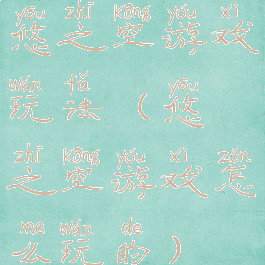 yōu zhī kōng yóu xì
悠之空游戏
wán fǎ yōu
玩法（悠
zhī kōng yóu xì zěn
之空游戏怎
me wán de
么玩的）